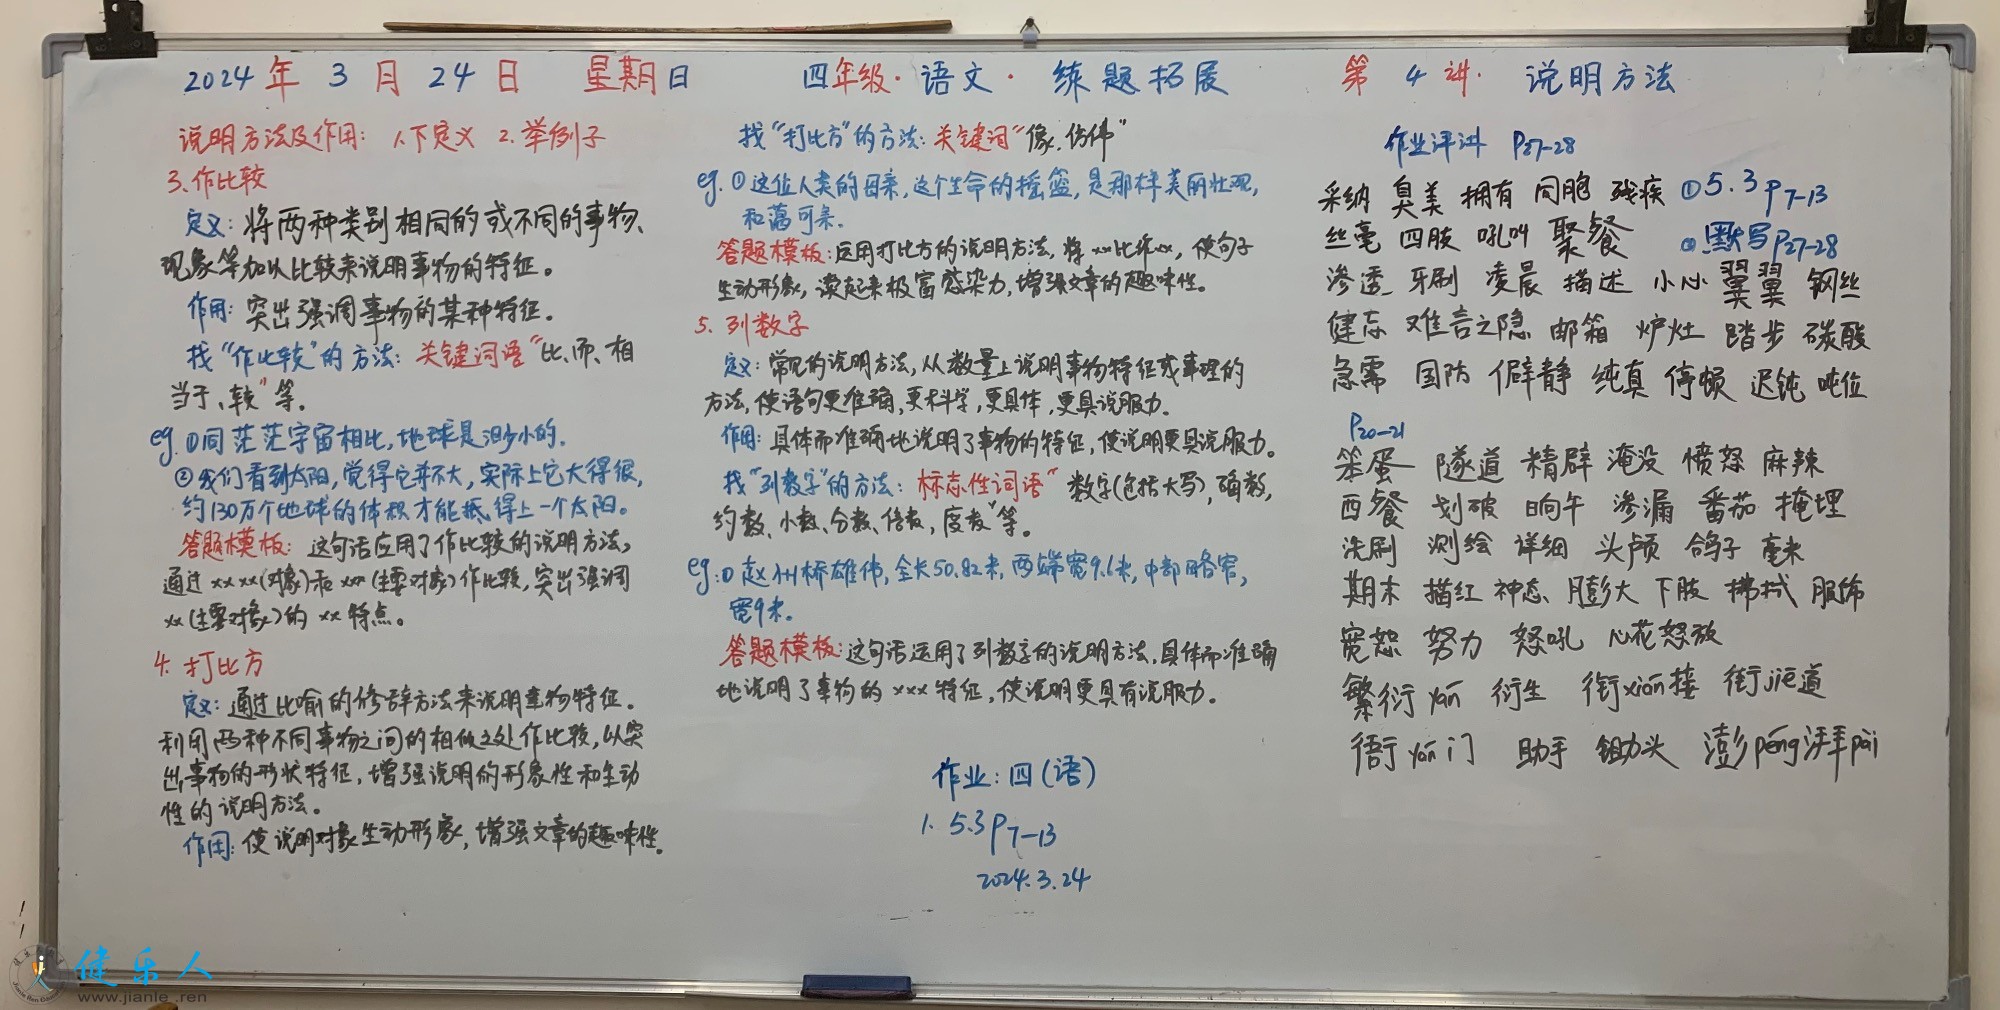 2024年3月24日 星期日 四年级·语文·练题拓展 第4讲· 说明方法
说明方法及作用: 1.下定义 2.举例子
3.作比较
定义:将两种类别相同的或不同的事物、
现象等加以比较来说明事物的特征。
作用:突出强调事物的某种特征。
找“作比较”的方法:关键词语“比、而、相
当于、较”等。
eg.①同茫茫宇宙相比,地球是渺小的。
②我们看到太阳,觉得它并不大,实际上它大得很,
约130万个地球的体积才能抵得上一个太阳。
答题模板:这句话应用了作比较的说明方法,
通过xxxx(对象)和xxx(主要对象)作比较,突出强调
xx(主要对象)的xx特点。
4.打比方
定义:通过比喻的修辞方法来说明事物特征。
利用两种不同事物之间的相似之处作比较,以突
出事物的形状特征,增强说明的形象性和生动
性的说明方法。
作用:使说明对象生动形象,增强文章的趣味性。
找“打比方”的方法:关键词“像、仿佛”
eg.①这位人类的母亲,这个生命的摇篮,是那样美丽壮观,
和蔼可亲.
答题模板:运用打比方的说明方法,将xx比作xx,使句子
生动形象,读起来极富感染力,增强文章的趣味性。
5.列数字
定义:常见的说明方法,从数量上说明事物特征或事理的
方法,使语句更准确,更科学,更具体,更具说服力。
作用:具体而准确地说明了事物的特征,使说明更具说服力。
找“列数字”的方法:标志性词语“数字(包括大写),确数,
约数、小数、分数、倍数,度数”等。
eg:①赵州桥雄伟,全长50.82米,两端宽9.6米,中部略窄,
宽9米。
答题模板:这句话运用了列数字的说明方法,具体而准确
地说明了事物的xxx特征,使说明更具有说服力。
作业:四(语)
1. 5.3P7-13
2024.3.24
作业评讲 P27-28
采纳 臭美 拥有 同胞 残疾 ①5.3P7-13
丝毫 四肢 吼叫 聚餐 ②默写P27-28
渗透 牙刷 凌晨 描述 小心翼翼 钢丝
健忘 难言之隐 邮箱 炉灶 踏步 碳酸
急需 国防 僻静 纯真 停顿 迟钝 吨位
P20-21
笨蛋 隧道 精辟 淹没 愤怒 麻辣
西餐 划破 晌午 渗漏 番茄 掩埋
洗刷 测绘 详细 头颅 鸽子 毫米
期末 描红 神态 膨大 下肢 拂拭 服饰
宽恕 努力 怒吼 心花怒放
繁衍yǎn 衍生 衔xián接 街jiē道
衙yá门 助手 锄头 澎péng湃pài
健乐人
www.jianle.ren